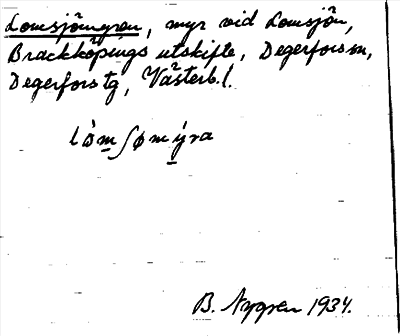 Lomsjömyran, myr vid Lomsjön,
Bräckköpings utskifte, Degerfors sn,
Degerfors tg, Västerb. l.
B. Nygren 1934.